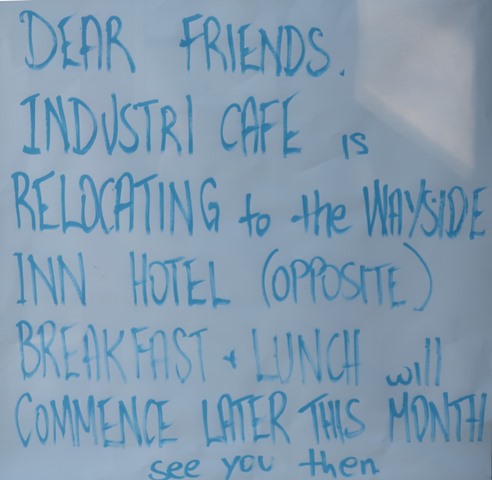 DEAR FRIENDS.
INDUSTRI CAFE is
RELOCATING to the WAYSIDE
INN HOTEL (OPPOSITE)
BREAKFAST + LUNCH will
COMMENCE LATER THIS MONTH
see you then